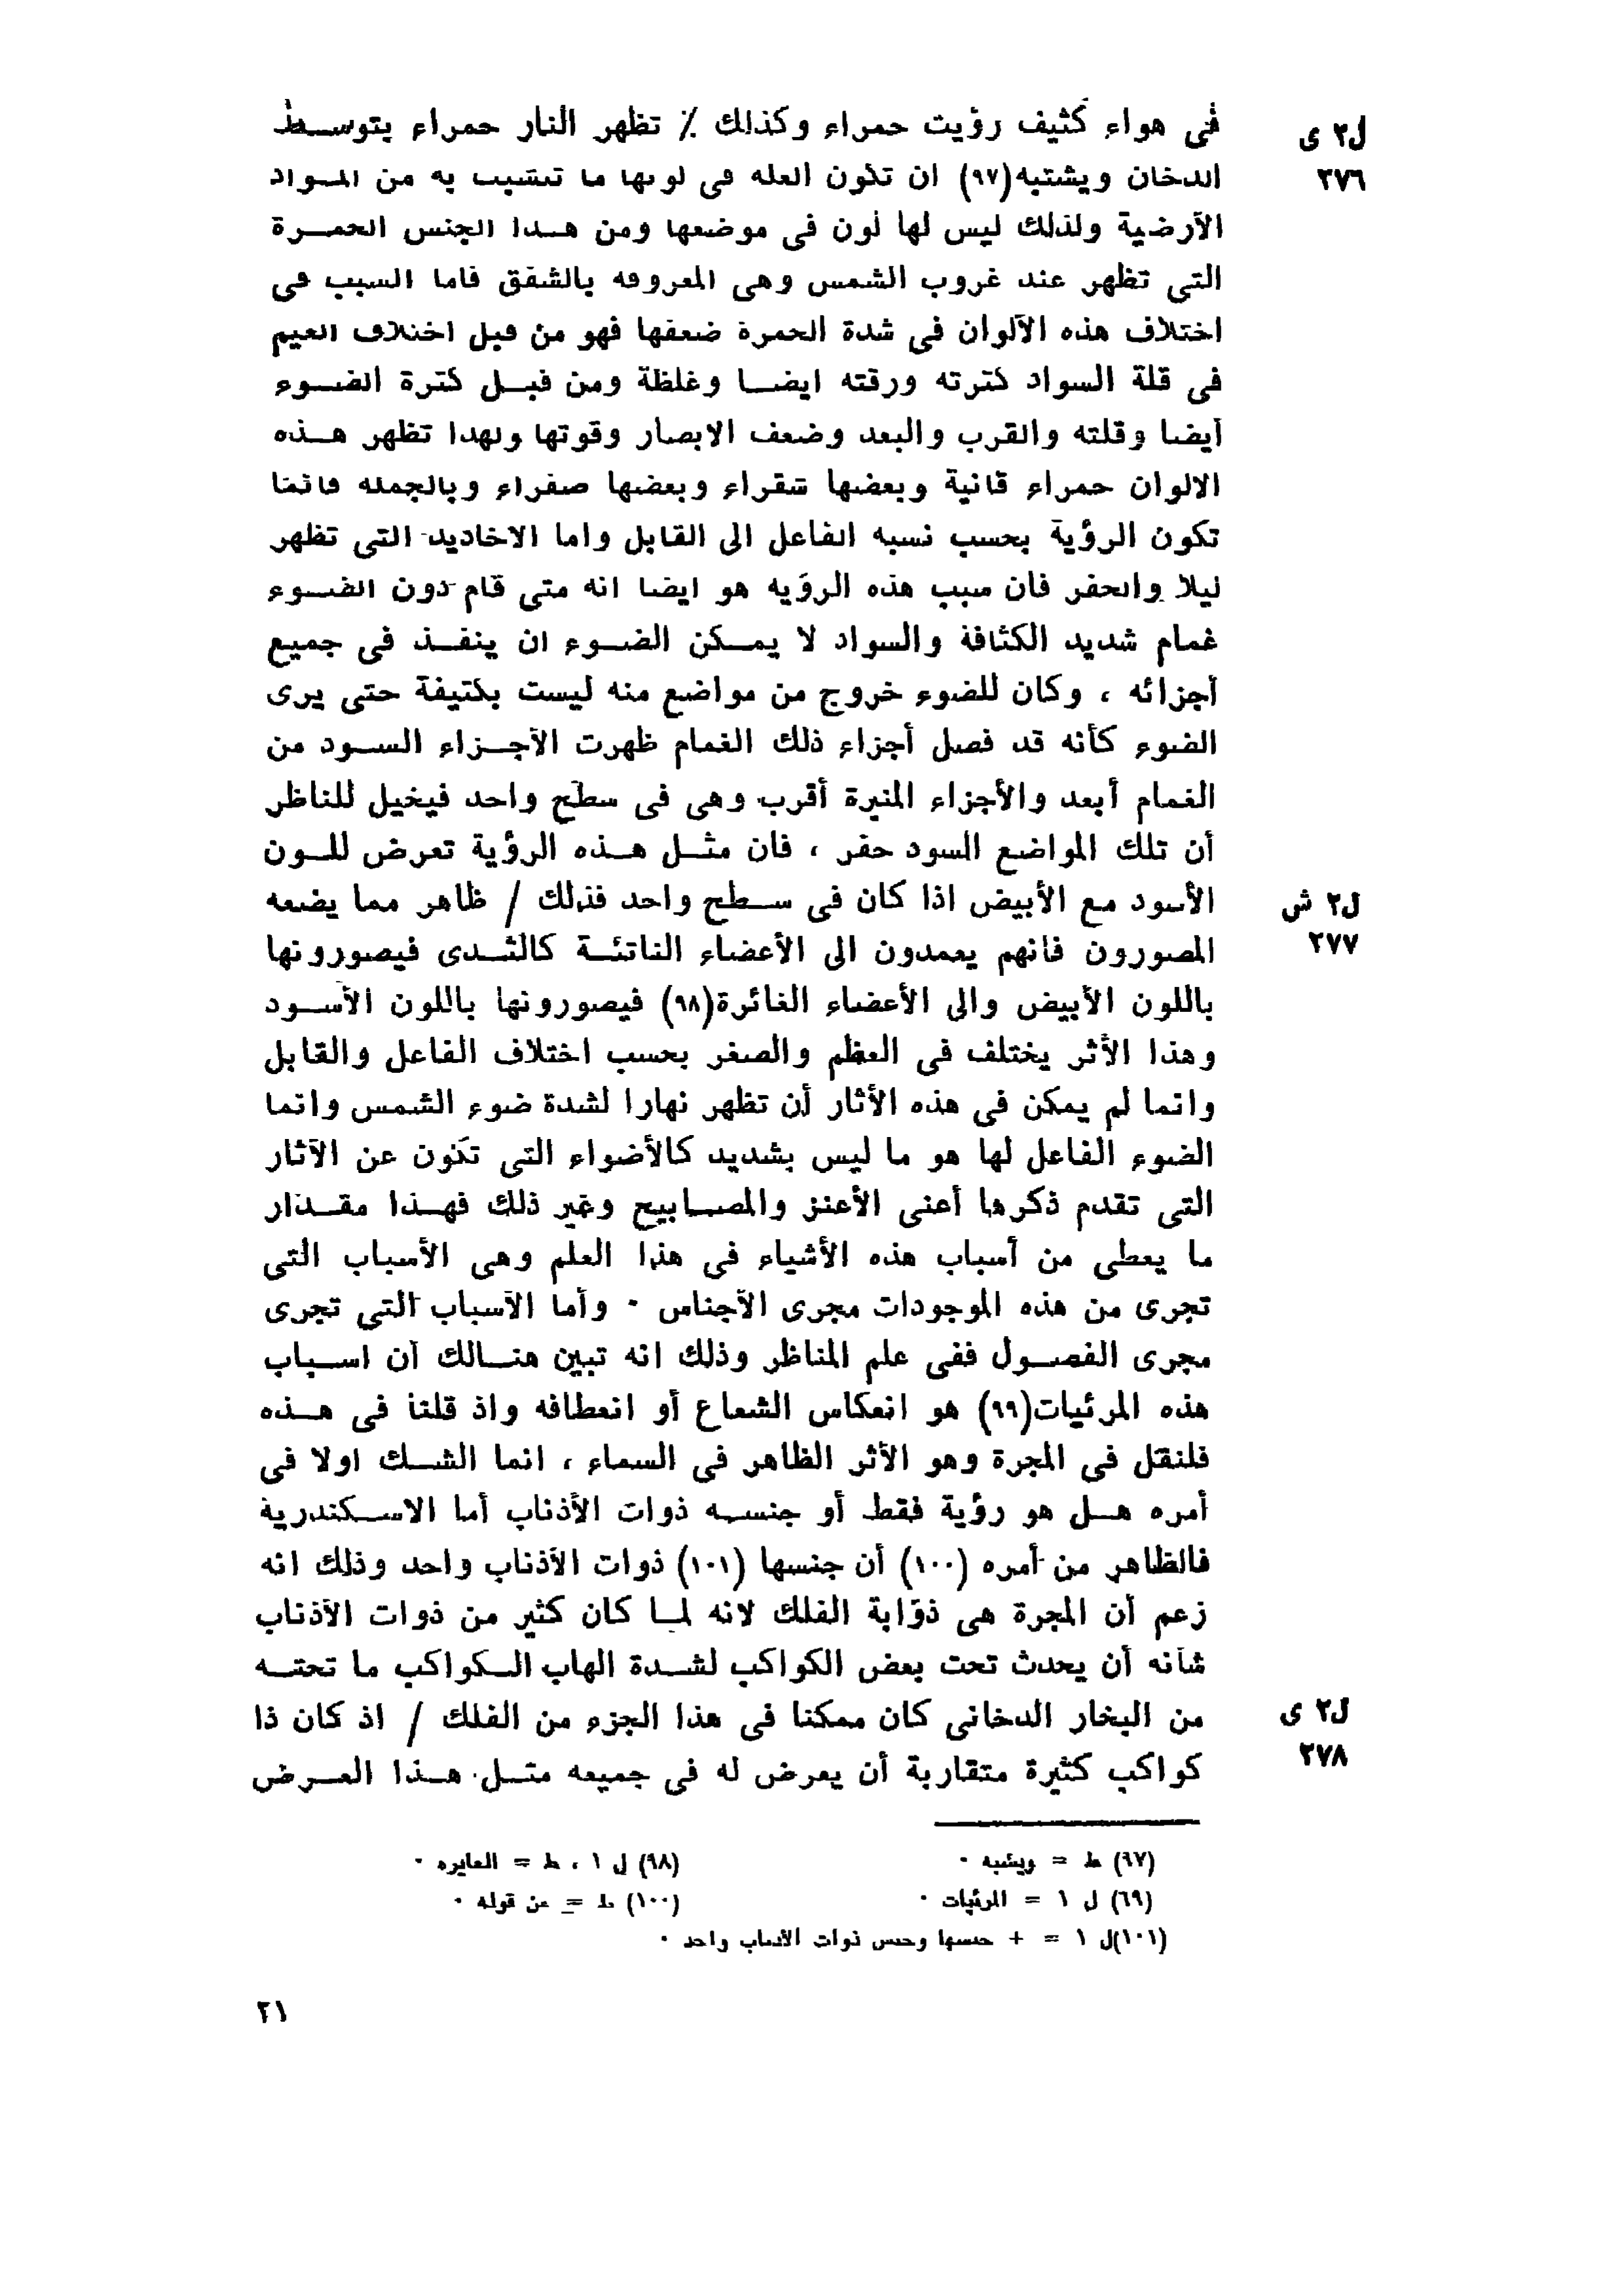 فى هواء كثيف رؤيت حمراء وكذلك ٪ تظهر النار حمراء يتوسط
ل٢ ى
٢٧٦
الدخان ويشتبه(٩٧) ان تكون العله فى لونها ما تتشبب به من المواد
الأرضية ولذلك ليس لها لون فى موضعها ومن هذا الجنس الحمرة
التى تظهر عند غروب الشمس وهى المعروفه بالشفق فاما السبب فى
اختلاف هذه الألوان فى شدة الحمرة ضعفها فهو من قبل اختلاف الغيم
فى قلة السواد كثرته ورقته ايضا وغلظة ومن قبل كثرة الضوء
أيضا وقلته والقرب والبعد وضعف الابصار وقوتها ولهذا تظهر هذه
الالوان حمراء قانية وبعضها شقراء وبعضها صفراء وبالجمله فانما
تكون الرؤية بحسب نسبه الفاعل الى القابل واما الاخاديد التى تظهر
ليلا والحفر فان سبب هذه الرؤيه هو ايضا انه متى قام دون الضوء
غمام شديد الكثافة والسواد لا يمكن الضوء ان ينفذ فى جميع
أجزائه ، وكان للضوء خروج من مواضع منه ليست بكثيفة حتى يرى
الضوء كأنه قد فصل أجزاء ذلك الغمام ظهرت الأجزاء السود من
الغمام أبعد والأجزاء المنيرة أقرب وهى فى سطح واحد فيخيل للناظر
أن تلك المواضع السود حفر ، فان مثل هذه الرؤية تعرض للون
الأسود مع الأبيض اذا كان فى سطح واحد فذلك / ظاهر مما يضعه
ل٢ ش
٢٧٧
المصورون فأنهم يعمدون الى الأعضاء الناتئة كالثدى فيصورونها
باللون الأبيض والى الأعضاء الغائرة(٩٨) فيصورونها باللون الأسود
وهذا الأثر يختلف فى العظم والصغر بحسب اختلاف الفاعل والقابل
وانما لم يمكن فى هذه الأثار أن تظهر نهارا لشدة ضوء الشمس وانما
الضوء الفاعل لها هو ما ليس بشديد كالأضواء التى تكون عن الآثار
التى تقدم ذكرها أعنى الأعنز والمصابيح وغير ذلك فهذا مقدار
ما يعطى من أسباب هذه الأشياء فى هذا العلم وهى الأسباب التى
تجرى من هذه الموجودات مجرى الأجناس ٠ وأما الأسباب التى تجرى
مجرى الفصول ففى علم المناظر وذلك انه تبين هنالك أن اسباب
هذه المرئيات(٩٩) هو انعكاس الشعاع أو انعطافه واذ قلنا فى هذه
فلنقل فى المجرة وهو الأثر الظاهر فى السماء ، انما الشك اولا فى
أمره هل هو رؤية فقط أو جنسه ذوات الأذناب أما الاسكندرية
فالظاهر من أمره (١٠٠) أن جنسها (١٠١) ذوات الأذناب واحد وذلك انه
زعم أن المجرة هى ذؤابة الفلك لانه لما كان كثير من ذوات الأذناب
شأنه أن يحدث تحت بعض الكواكب لشدة الهاب الكواكب ما تحته
من البخار الدخانى كان ممكنا فى هذا الجزء من الفلك / اذ كان ذا
ل٢ ى
٢٧٨
كواكب كثيرة متقاربة أن يعرض له فى جميعه مثل هذا العرض
(٦٧) ط = ويشبه ٠
(٩٨) ل ١ ، ط = العايره ٠
(٦٩) ل ١ = المرئيات ٠
(١٠٠) ط = عن قوله ٠
(١٠١)ل ١ = + جنسها وجنس ذوات الأذناب واحد ٠
٢١